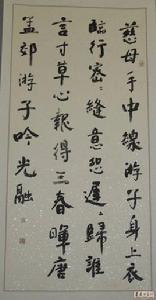 慈母手中線游子身上衣
臨行密密縫意恐遲遲歸誰
言寸草心報得三春暉唐
孟郊游子吟光融